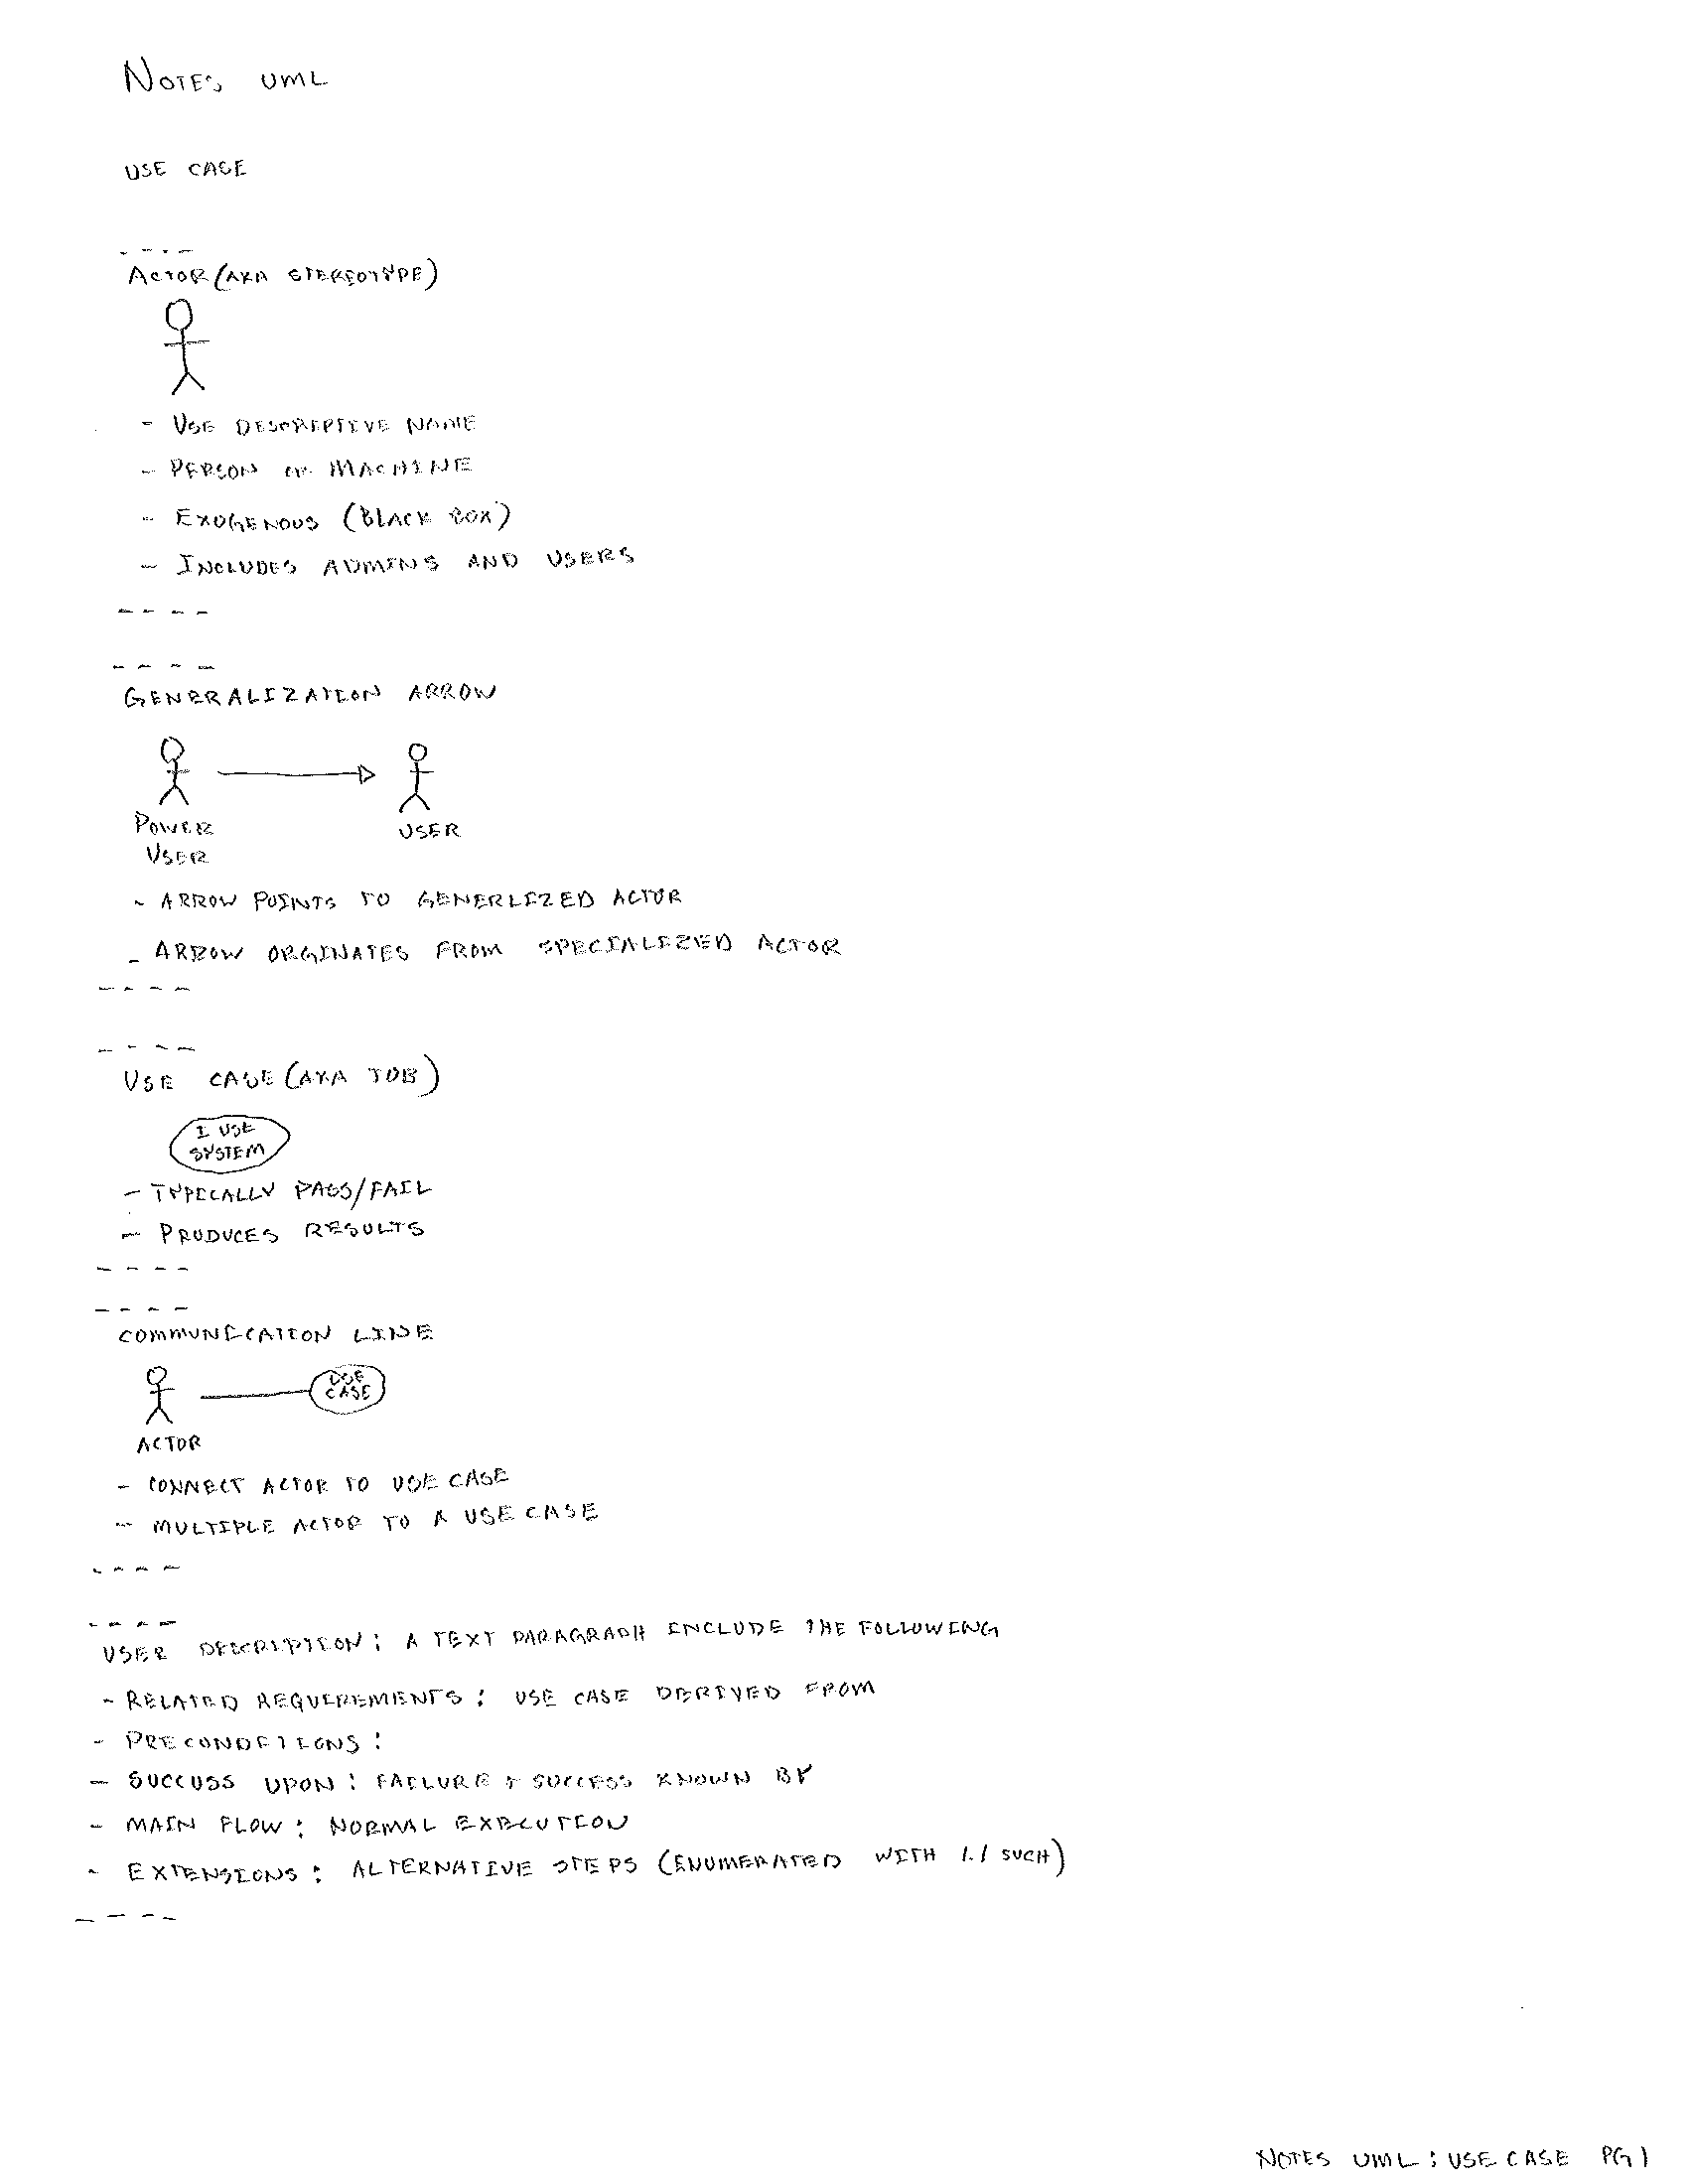 NOTES UML
USE CASE
----
ACTOR (AKA STEREOTYPE)
- USE DESCRIPTIVE NAME
- PERSON OR MACHINE
- EXOGENOUS (BLACK BOX)
- INCLUDES ADMINS AND USERS
----
----
GENERALIZATION ARROW
POWER USER
USER
- ARROW POINTS TO GENERLIZED ACTOR
- ARROW ORGINATES FROM SPECIALIZED ACTOR
----
----
USE CASE (AKA JOB)
I USE
SYSTEM
- TYPICALLY PASS/FAIL
- PRODUCES RESULTS
----
----
COMMUNICATION LINE
USE
CASE
ACTOR
- CONNECT ACTOR TO USE CASE
- MULTIPLE ACTOR TO A USE CASE
----
----
USER DESCRIPTION: A TEXT PARAGRAPH INCLUDE THE FOLLOWING
- RELATED REQUIREMENTS: USE CASE DERIVED FROM
- PRECONDITIONS:
- SUCCUSS UPON: FAILURE + SUCCESS KNOWN BY
- MAIN FLOW: NORMAL EXECUTION
- EXTENSIONS: ALTERNATIVE STEPS (ENUMERATED WITH 1.1 SUCH)
----
NOTES UML: USE CASE PG 1